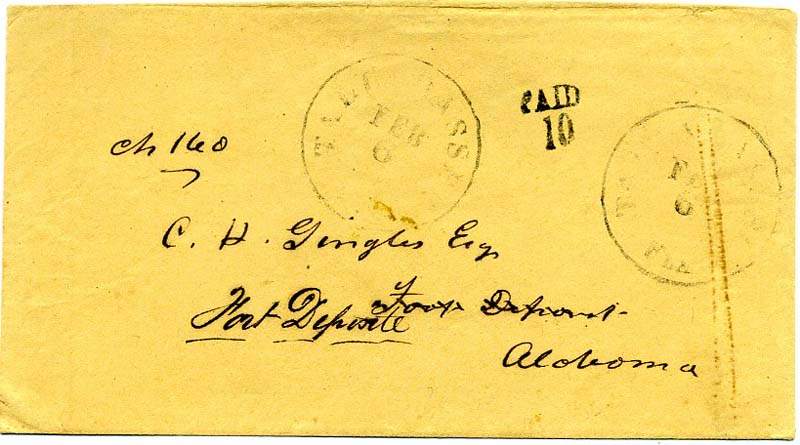 TALLAHASSEE
FEB
6
PAID
10
TALLAHASSEE
FEB
6
FLA
ch 160
C. H. Gingles Esq
Fort Deposit
Fort Deposite
Alabama